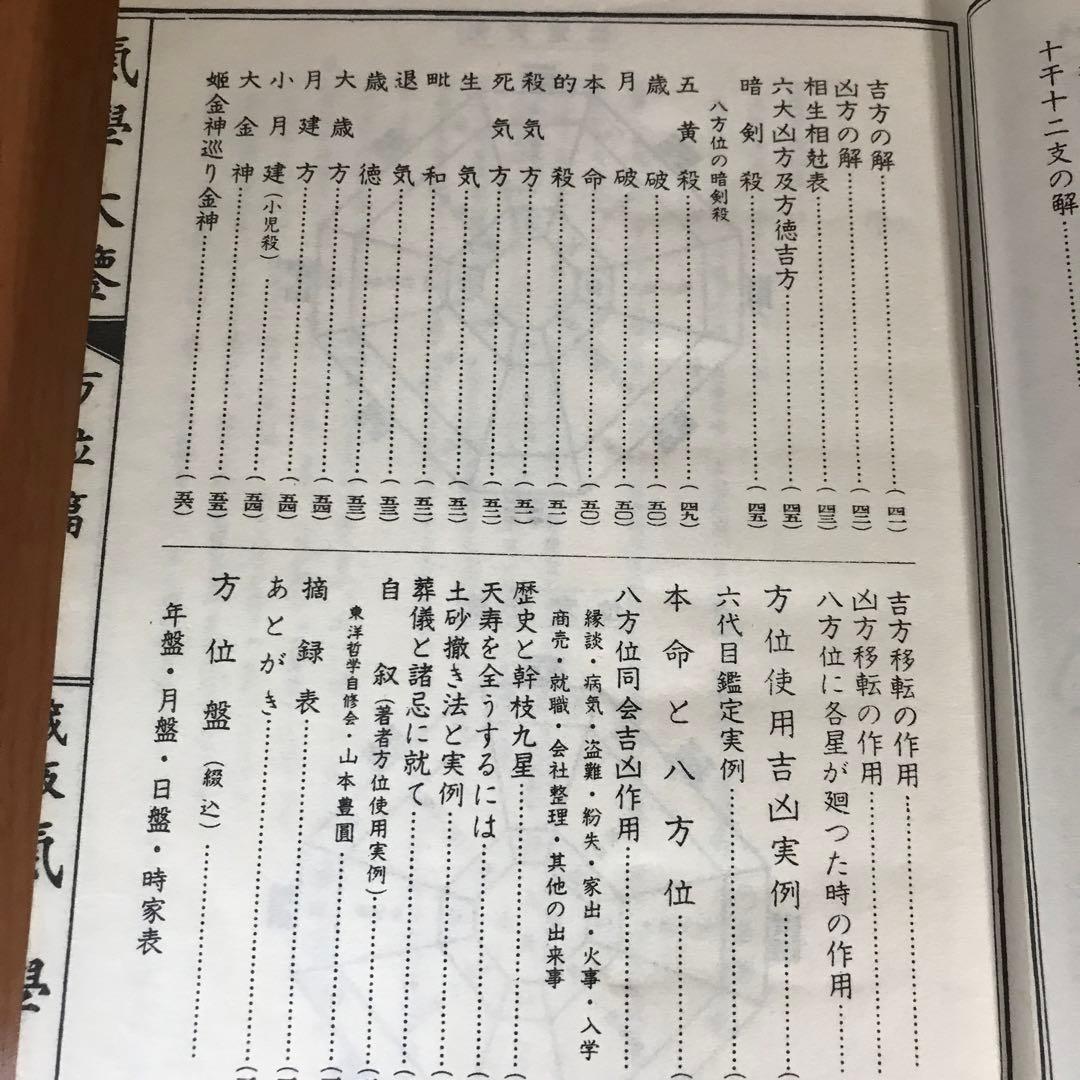 十干十二支の解
吉方の解(四一)
凶方の解(四二)
相生相尅表(四三)
六大凶方及方徳吉方(四五)
暗剣殺(四五)
八方位の暗剣殺
五黄殺(四九)
歳破(五〇)
月破(五〇)
本命(五〇)
的殺(五一)
殺気方(五一)
死気方(五二)
生気(五二)
毗和(五二)
退気
歳徳
大歳方
月建方(五四)
小月建(小児殺)(五四)
大金神(五四)
姫金神巡り金神(五五)
吉方移転の作用
凶方移転の作用
八方位に各星が廻つた時の作用
方位使用吉凶実例
六代目鑑定実例
本命と八方位
八方位同会吉凶作用
縁談・病気・盗難・紛失・家出・火事・入学
商売・就職・会社整理・其他の出来事
歴史と幹枝九星
天寿を全うするには
土砂撤き法と実例
葬儀と諸忌に就て
自叙(著者方位使用実例)
東洋哲学自修会・山本豊圓
摘録表
あとがき
方位盤(綴込)
年盤・月盤・日盤・時家表
氣學大鑒
方位篇
蔵版氣學